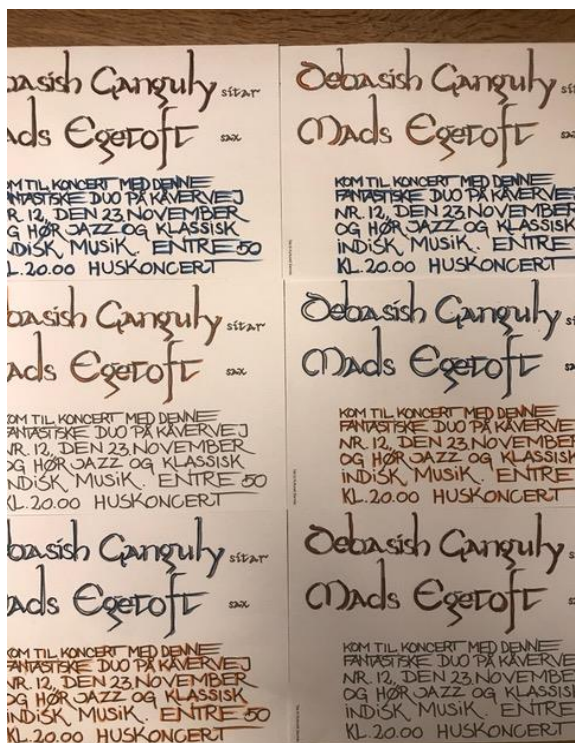 basish Ganguly sitar
ads Egetoft sax
OM TIL KONCERT MED DENNE
FANTASTISKE DUO PÅ KÅVERVEJ
NR. 12, DEN 23. NOVEMBER
OG HØR JAZZ OG KLASSISK
INDISK MUSIK. ENTRE 50
KL. 20.00 HUSKONCERT
Debasish Ganguly si
Mads Egetoft sax
KOM TIL KONCERT MED DENNE
FANTASTISKE DUO PÅ KÅVERVEJ
NR. 12, DEN 23. NOVEMBER
OG HØR JAZZ OG KLASSISK
INDISK MUSIK. ENTRE
KL. 20.00 HUSKONCERT
basish Ganguly sitar
ads Egetoft sax
KOM TIL KONCERT MED DENNE
FANTASTISKE DUO PÅ KÅVERVEJ
NR. 12, DEN 23. NOVEMBER
OG HØR JAZZ OG KLASSISK
INDISK MUSIK. ENTRE 50
KL. 20.00 HUSKONCERT
Debasish Ganguly s
Mads Egetoft sax
KOM TIL KONCERT MED DENNE
FANTASTISKE DUO PÅ KÅVERVEJ
NR. 12, DEN 23. NOVEMBER
OG HØR JAZZ OG KLASSISK
INDISK MUSIK. ENTRE
KL. 20.00 HUSKONCERT
basish Ganguly sitar
ads Egetoft sax
KOM TIL KONCERT MED DENNE
FANTASTISKE DUO PÅ KÅVERVEJ
NR. 12, DEN 23. NOVEMBER
OG HØR JAZZ OG KLASSISK
INDISK MUSIK. ENTRE 50
KL. 20.00 HUSKONCERT
Debasish Ganguly s
Mads Egetoft sax
KOM TIL KONCERT MED DENNE
FANTASTISKE DUO PÅ KÅVERVEJ
NR. 12, DEN 23. NOVEMBER
OG HØR JAZZ OG KLASSISK
INDISK MUSIK. ENTRE
KL. 20.00 HUSKONCERT